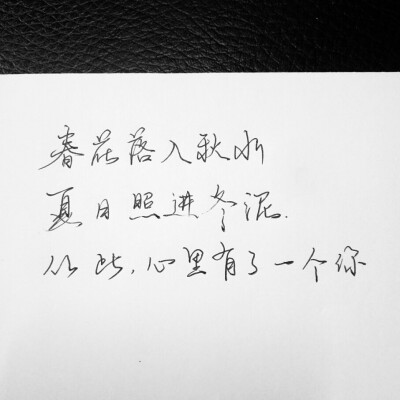 春花落入秋水
夏日照进冬泥.
从此,心里有了一个你